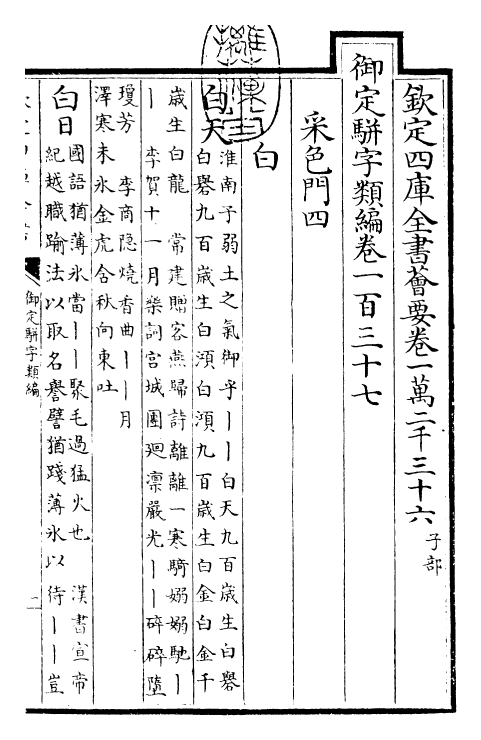 欽定四庫全書薈要卷一萬二千三十六 子部
御定駢字類編卷一百三十七
采色門四
白
白天
淮南子弱土之氣御乎丨丨白天九百歲生白礜
白礜九百歲生白澒白澒九百歲生白金白金千
歲生白龍 常建贈客燕歸詩離離一寒騎嫋嫋馳丨
丨 李賀十一月樂詞宮城團廻凛嚴光丨丨碎碎墮
瓊芳 李商隐燒香曲丨丨月
澤寒未氷金虎含秋向東吐
白日
國語猶薄氷當丨丨聚毛過猛火也 漢書宣帝
紀越職踰法以取名譽譬猶踐薄氷以待丨丨豈
御定駢字類編